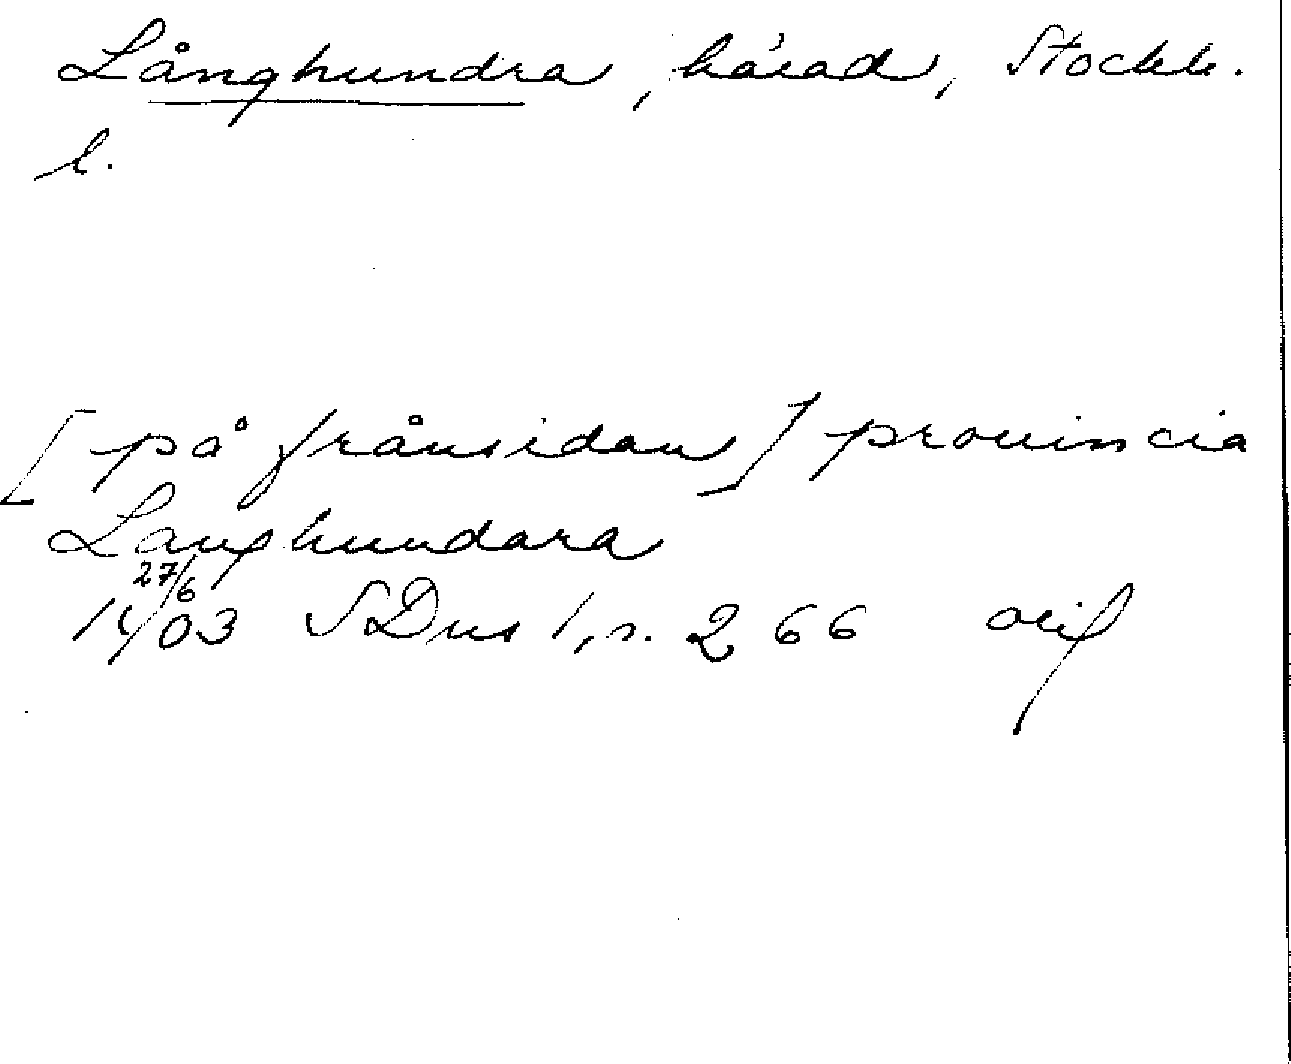 Långhundra, härad, Stockh.
l.
[på frånsidan] prouincia
Langhundara
27/6
1403 SDns 1, s. 266 orif